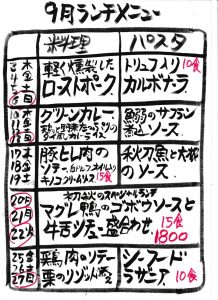 9月ランチメニュー
料理 パスタ
3 木
4 金
5 土
6 日
軽く燻製した
ローストポーク
トリュフ入り 10食
カルボナーラ
10 木
11 金
12 土
13 日
グリーンカレー、
タイ
鰯のサフラン
煮込ソース
17 木
18 金
19 土
豚ヒレ肉の
ソテー、
キノコクリームソース 15食
秋刀魚と大根
のソース
20日
21月
22火
初秋のスペシャルランチ
マグレ鴨のゴボウソースと
牛舌ソテー盛合わせ 15食
1800
25 金
26 土
27 日
鶏肉のソテー
栗のリゾット添え
シーフード
ラザニア 10食